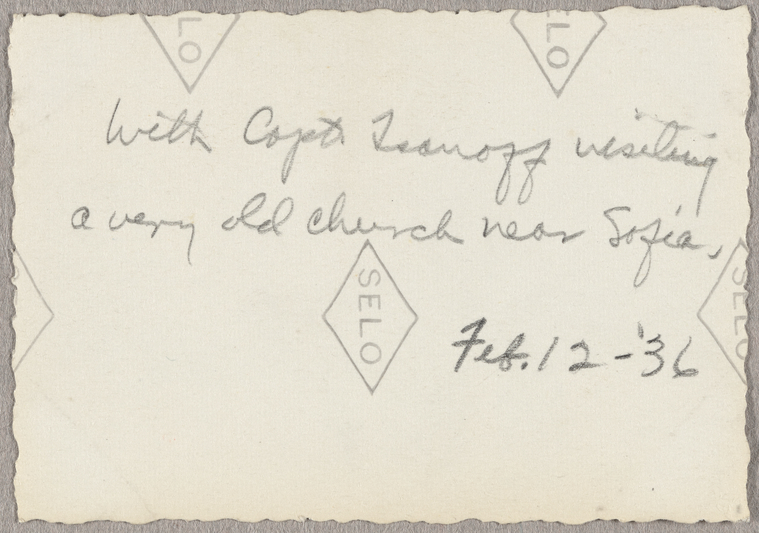 LO
ELO
With Capt. Isanoff visiting
a very old church near Sofia,
SELO
SELO
Feb. 12-'36